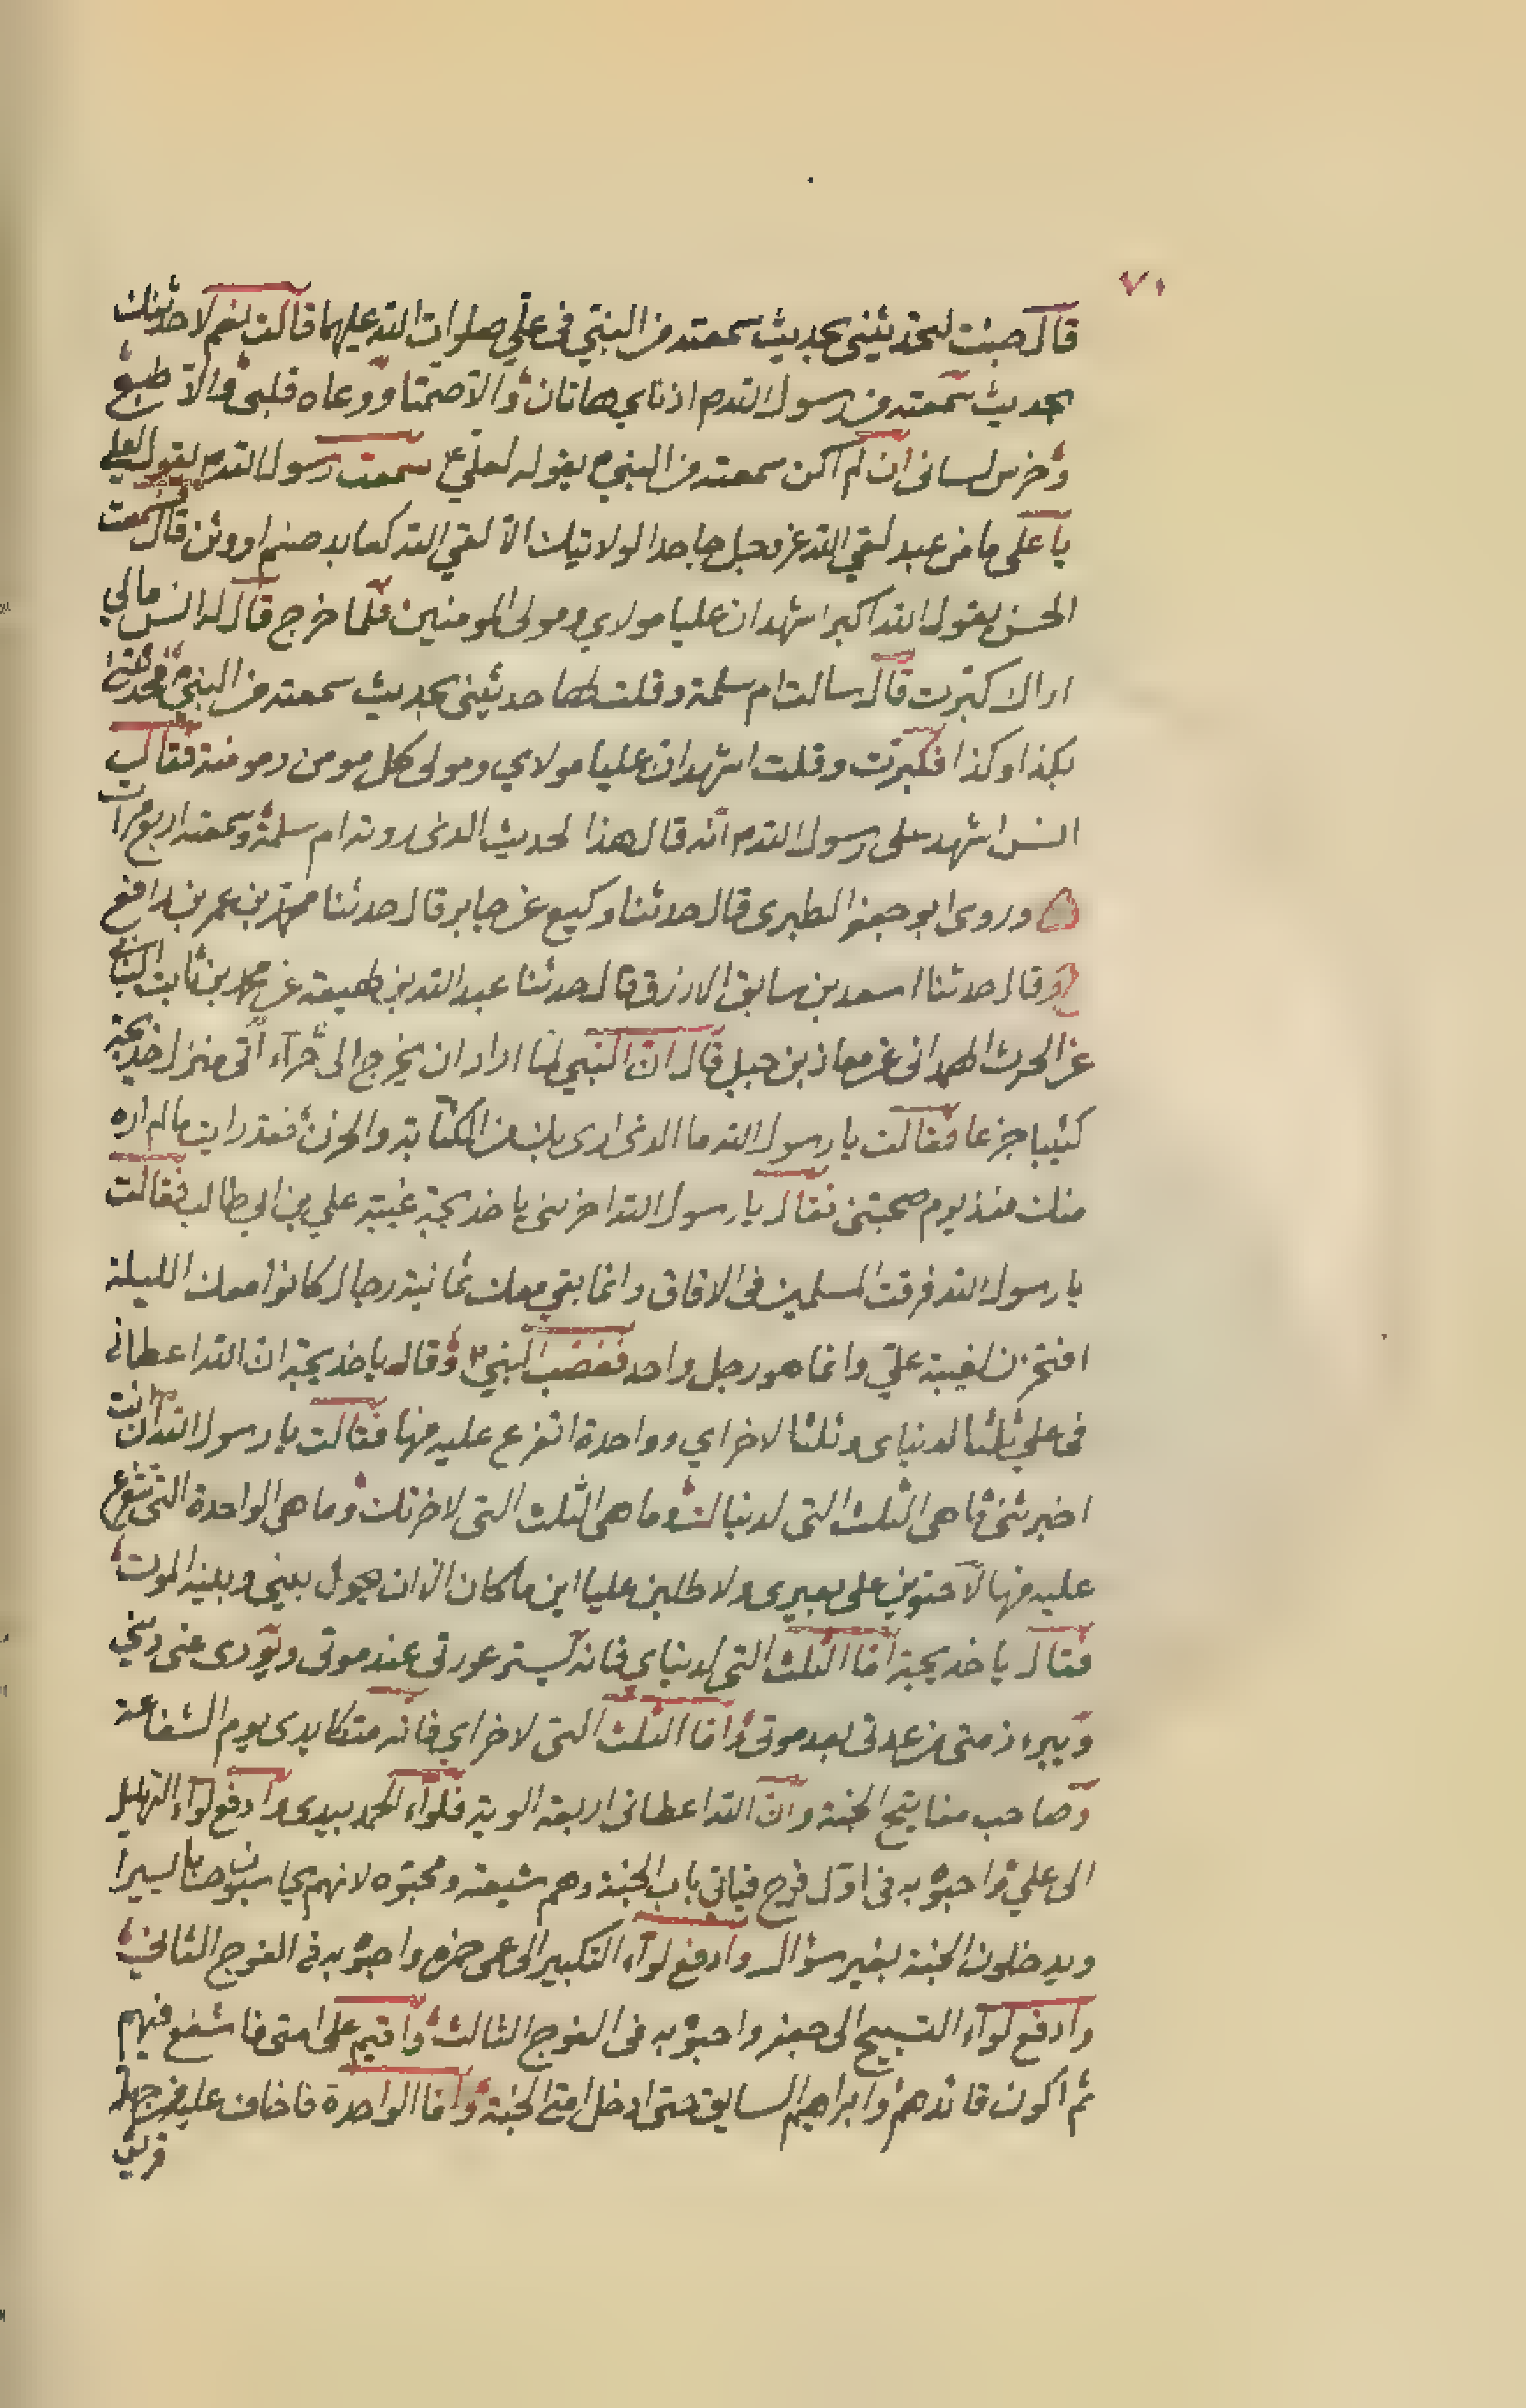 ٧٠
قال جئت لتحدثيني بحديث سمعته من النبي في علي صلوات الله عليهما قالت نعم لاحدثنك
بحديث سمعته من رسول الله ص اذناي هاتان والا صمتا ووعاه قلبي والا طبع
وخرس لساني ان لم اكن سمعته من النبي يقوله لعلي ع سمعت رسول الله ص يقول لعلي
يا علي ما من عبد لقي الله عز وجل جاحدا لولايتك الا لقي الله كعابد صنم او وثن قال فسمعت
الحسن يقول الله اكبر اشهد ان عليا مولاي ومولى المومنين فلما خرج قال له انس مالي
اراك كبرت قال سالت ام سلمة وقلت لها حدثيني بحديث سمعته من النبي فحدثتني
بكذا وكذا فكبرت وقلت اشهد ان عليا مولاي ومولى كل مومن ومومنة فقال
انس اشهد على رسول الله ص انه قال هذا لحديث الذي روته ام سلمة وسمعته اربع مرات
وروى ابو جعفر الطبري قال حدثنا وكيع عن جابر قال حدثنا محمد بن عمر بن رافع
وقال حدثنا اسعد بن سابق الازرق قال حدثنا عبد الله بن لهيعة عن محمد بن ثابت البناني
عن الحرث الهمداني عن معاذ بن جبل قال ان النبي لما اراد ان يخرج الى حرآء اتى منزل خديجة
كئيبا جزعا فقالت يا رسول الله ما الذي ارى بك من الكئابة والحزن فقد رايت ما لم اره
منك منذ يوم صحبتني فقال يا رسول الله احزنني يا خديجة غيبة علي بن ابي طالب فقالت
يا رسول الله فرقت المسلمين في الافاق وانما بقي معك ثمانية رجال كانوا معك الليلة
افتحزن لغيبة علي وانما هو رجل واحد فغضب النبي وقال يا خديجة ان الله اعطاني
في علي ثلثا لدنياي وثلثا لاخراي وواحدة اتفزع عليه منها فقالت يا رسول الله ان انت
اخبرتني ما هي الثلث التي لدنياك وما هي الثلث التي لاخرتك وما هي الواحدة التي
عليه منها لاحتوين على بعيري ولاطلبن عليا اين ما كان الا ان يحول بيني وبينه الموت
فقال يا خديجة اما الثلث التي لدنياي فانه يستر عورتي عند موتي ويودى عني ديني
ويبرء ذمتي من عدتي بعد موتي واما الثلث التي لاخراي فانه متكا يدى يوم الشفاعة
وصاحب مفاتيح الجنة وان الله اعطاني اربعة الوية فلوآء الحمد بيدي وادفع لوآء التهليل
الى علي واحبوه به في اول فوج فياتي باب الجنة وهم شيعته ومحبوه لانهم يحاسبون حسابا يسيرا
ويدخلون الجنة بغير سؤال وادفع لوآء التكبير الى عمى حمزه واحبوه به في الفوج الثاني
وادفع لوآء التسبيح الى جعفر واحبوه به في الفوج الثالث واقيم على امتي فاشفع فيهم
ثم اكون قائدهم وابراهيم السايق حتى ادخل امتي الجنة واما الواحدة فاخاف عليه من جهلة
قريش